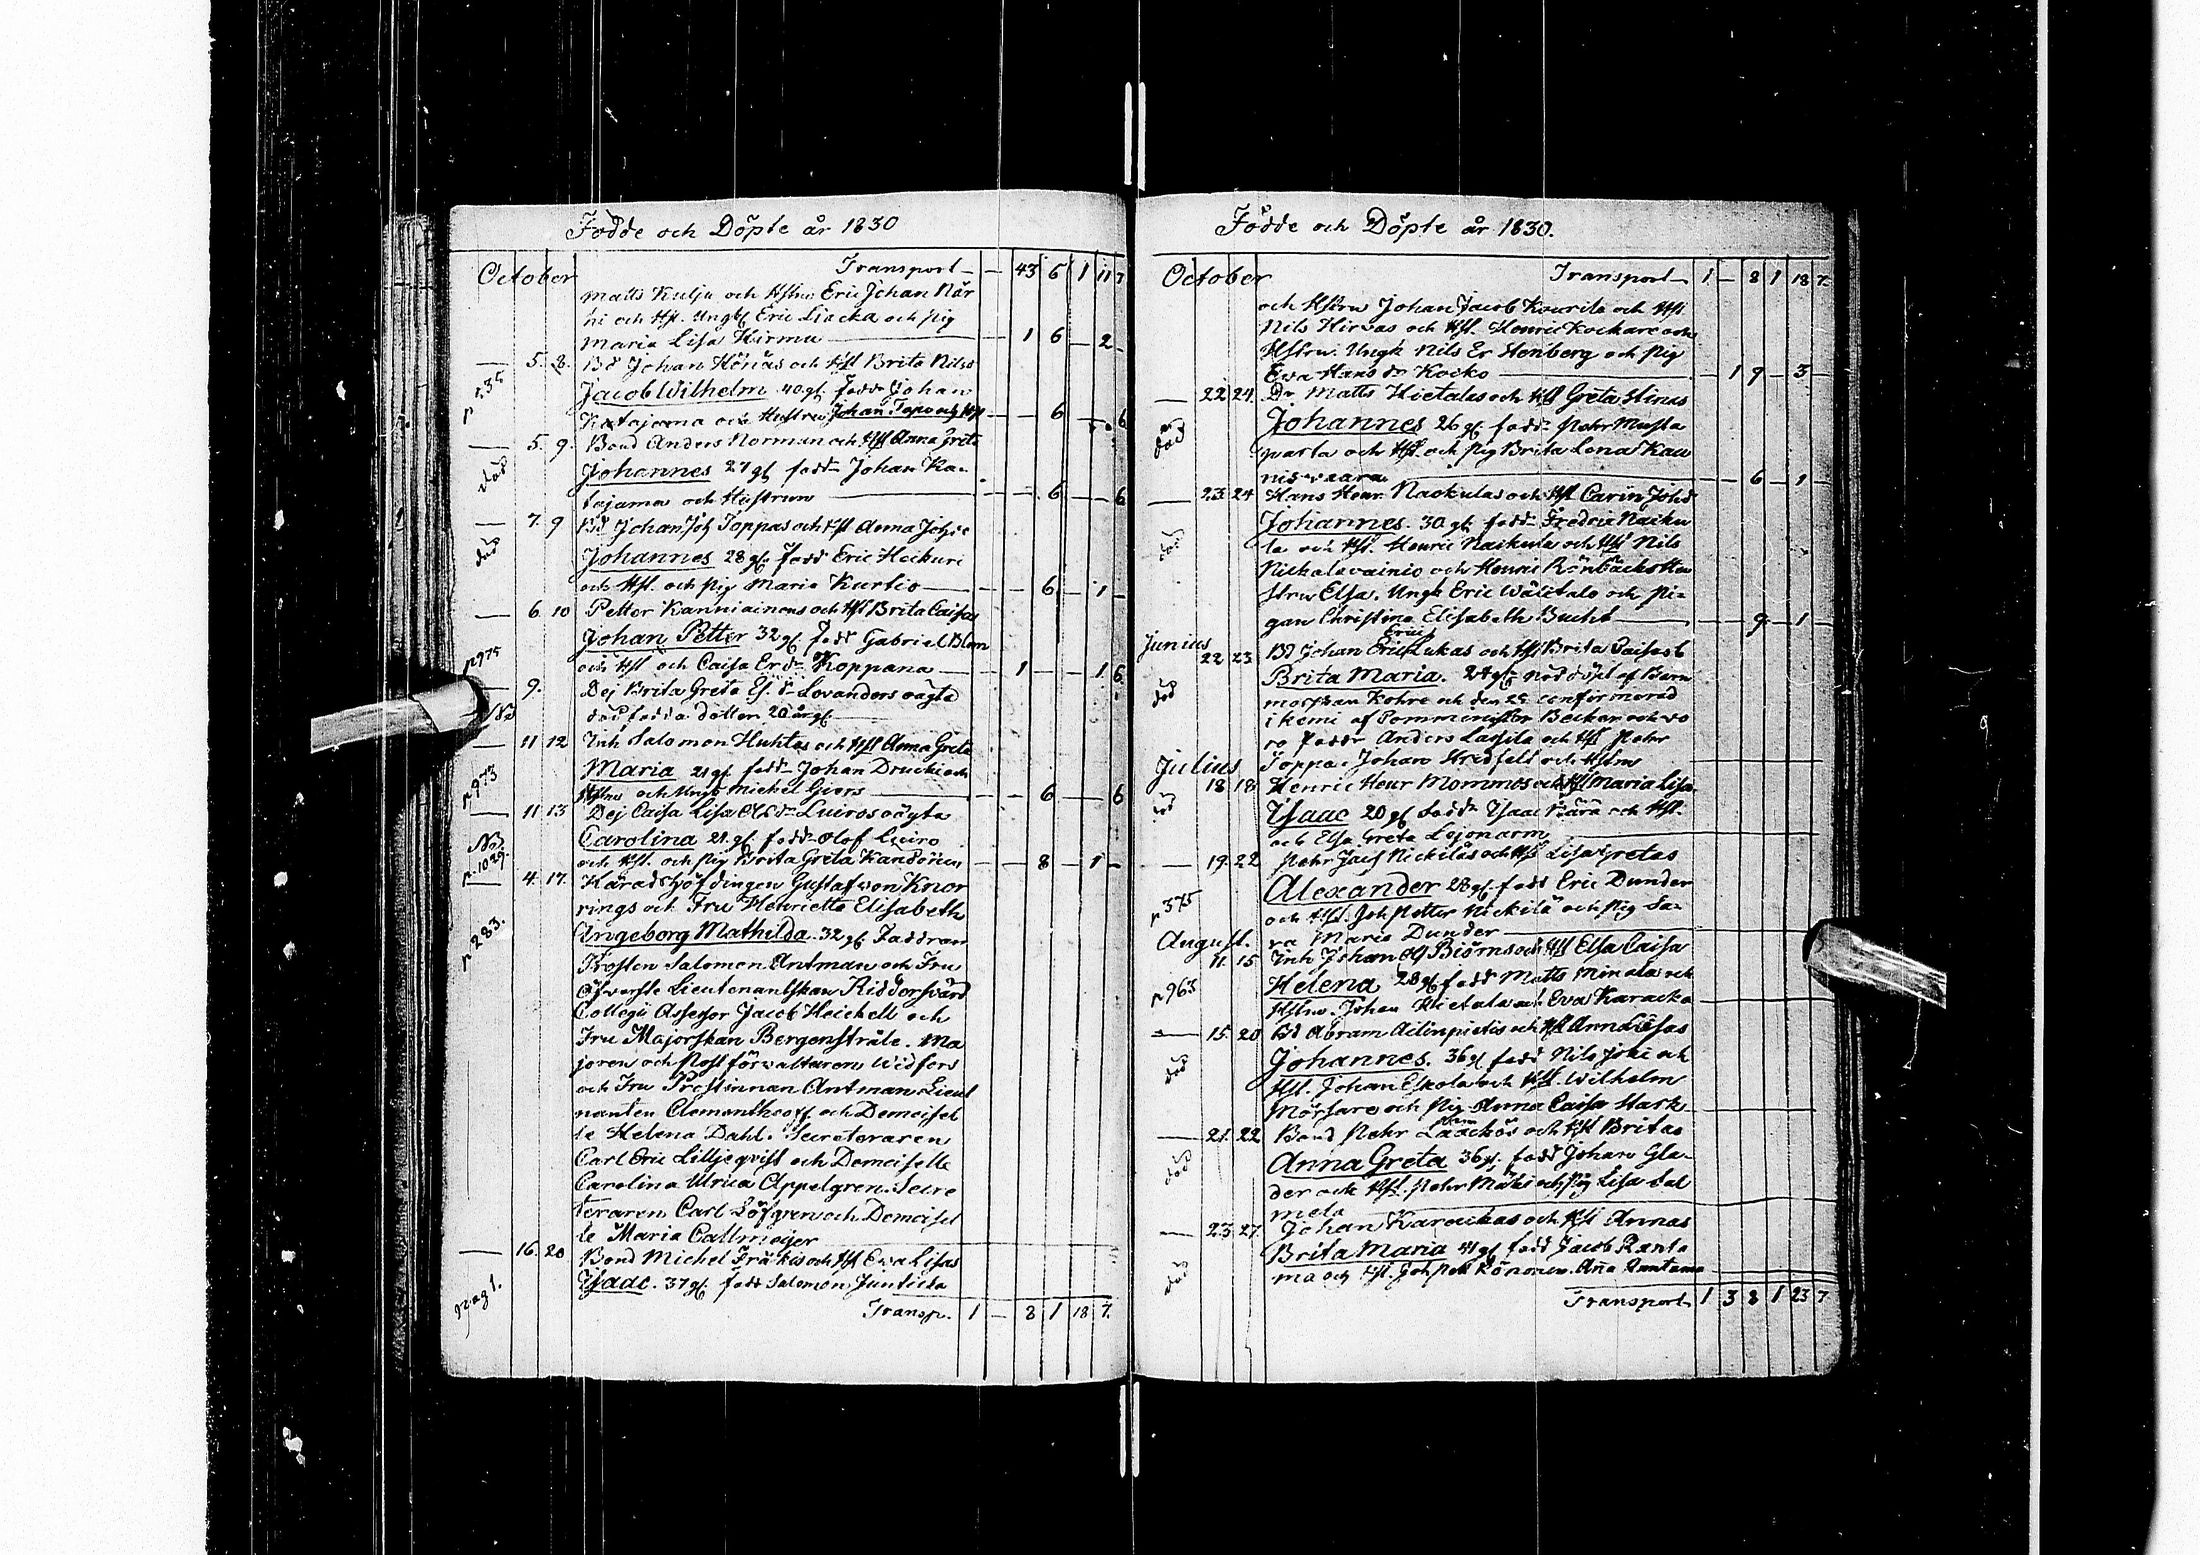 Födde och Döpte år 1830
October Transport — — 43 6 1 11 7
Matts Kulju och Hstru Eric Johan När
hi och Hst. Ungk Eric Liacka och pig
Maria Lisa Hirmu — 1 6 — 2 —
— 5. 8. Bd Johan Hörnäs och Hst Brita Nilsd
p 135 Jacob Wilhelm 40 gl. fadd Johan
Katajama och Hustru Johan Tapo och Hst — 6 — — 6
— 5. 9. Bond Anders Norman och Hst Anna Greta
död Johannes 27 gl fadd Johan Ka-
tajama och Hustrun — 6 — — 6
— 7. 9 Bd Johan Joh Toppas och Hst Anna Johs d
död Johannes 28 gl. fadd Eric Heikuri
och Hst. och pig Maria Kurtio — — 6 — 1 —
— 6. 10 Petter Kanniainens och Hst Brita Caisas
Johan Petter 32 gl. fadd Gabriel Blom
p 975 och Hst och Caisa Er dr Koppana — 1 — — 1 6
— 9. Dej Brita Greta Es. dr Lovanders oägta
No död födda dotter 20 år gl.
— 11 12 Inh Salomon Huhtas och Hst Anna Greta
p. 973 Maria 21 gl. fadd Johan Drucki och
Hstru och Ungk Michel Giers — — 6 — — 6
— 11 13 Dej Caisa Lisa Ol. dr Luiros oägta
No Carolina 21. gl. fadd Olof Luiro
p. 1029. och Hst. och pig Brita Greta Kandonen — — 8 — 1 —
— 4. 17. Häradshöfdingen Gustaf von Knor
rings och Fru Henrietta Elisabeth
p 283. Ingeborg Mathilda. 32 gl. Faddran
Prosten Salomon Antman och Fru
Öfverste Lieutenantskan Riddersvärd
Collegii Assessor Jacob Heickell och
Fru Majorskan Bergenstråle. Ma
joren och Postförvaltaren Widfors
och Fru Prostinnan Antman Lieut
nanten Clementheoff och Demoisel
le Helena Dahl. Secreteraren
Carl Eric Lilljeqvist och Demoiselle
Carolina Ulrica Appelgren. Secre
teraren Carl Löfgren och Demoisel
le Maria Callmeyer
— 16. 20 Bond Michel Fräkis och Hst Eva Lisas
pag 1. Isaac. 37 gl. fadd Salomon Junticka
Transp. 1 — 8 1 18 7.
Födde och Döpte år 1830.
October Transport 1 — 8 1 18 7.
och Hstru Johan Jacob Kourila och Hst
Nils Hirvas och Hst. Henric Kockare och
Hstru. Ungk Nils Er Stenberg och Pig
Eva Hans dr Kocko — — 1 9 — 3 —
— 22 24. Dr Matts Hietalas och Hst Greta Stinas
död Johannes 26 gl. fadd Pehr Musta
parta och Hst. och pig Brita Lena Kau
nisvaara — 6 — 1 —
— 23. 24 Hans Henr. Naskulas och Hst Carin Johsd
död Johannes. 30 gl fadd Fredric Naiku
la och Hst. Henric Naikula och Hst Nils
Nickalavainio och Henric Rönbäcks Hu
stru Elsa. Ungk Eric Wälitalo och Pi-
gan Christina Elisabeth Bucht — — 9 — 1 —
Junius
22 23. Bd Johan Erics Lukas och Hst Brita Caisas b
död Brita Maria. 24 gl. nöd döpt af Barn
morskan Kohre och den 25 confirmerad
i Kemi af Comminister Becker och vo
ro faddr Anders Lassila och Hst Pehr
Toppa. Johan Stedfelt och Hstru
Julius
18 18. Henric Henr Mommos och Hst Maria Lisa
död Isaac 20 gl fadd Isaac Kärä och Hst.
och Elsa Greta Lojonarm
— 19. 22 Pehr Jacs Nickiläs och Hst Lisa Gretas
p 575 Alexander 28 gl. fadd Eric Dunder
och Hst. Joh Petter Nickilä och pig Sa-
ra Maria Dunder
August.
11. 15 Inh Johan Ol Biörns och Hst Elsa Caisa
p 963 Helena 28 gl fadd Matts Minala och
Hstru. Johan Hietala och Eva Karacka
— 15. 20 Bd Abram Ailinpietis och Hst Anna Lisas
död Johannes. 36 gl fadd Nils Joki och
Hst. Johan Eskola och Hst. Wilhelm
Mörtare och Pig Anna Caisa Stark
— 21. 22 Bond Pehr Laackos och Hst Britas
död Anna Greta 36 gl. fadd Johan Gla-
der och Hst. Pehr Mäki och pig Lisa Sal
mela
— 23 27. Johan Karackas och Hst Annas
död Brita Maria 41 gl fadd Jacob Ranta
ma och Hst. Joh Pett Rönonen. Anna Rantama
Transport 1 3 8 1 23 7